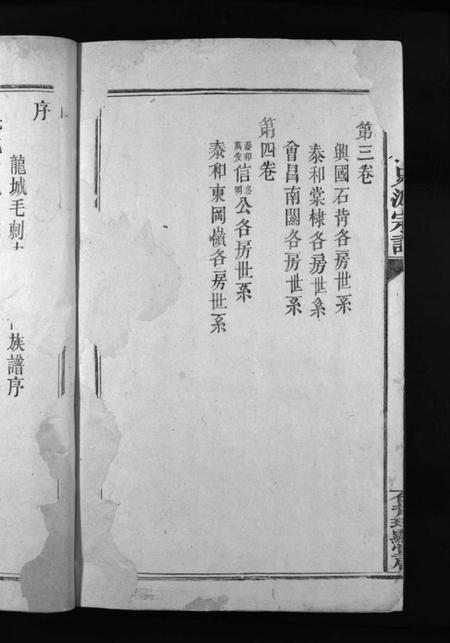 第三卷
興國石背各房世系
泰和棠棣各房世系
會昌南關各房世系
第四卷
泰和萬安信忠明公各房世系
泰和東岡嶺各房世系
序
龍城毛刺
族譜序